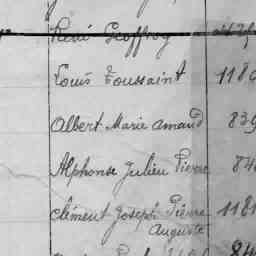 René Geoffroy
Louis Toussaint 118
Albert Marie Amand 839
Alphonse Julien Pierre 84
Clément Joseph Pierre 1181
Auguste
84